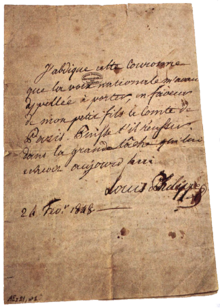 J'abdique cette couronne
que la voix nationale m'avait
appellée à porter, en faveur
de mon petit fils le Comte de
Paris. Puisse t'il réussir
dans la grande tâche qui lui
échoit aujourd'hui
Louis Philippe
24 Fevr. 1848